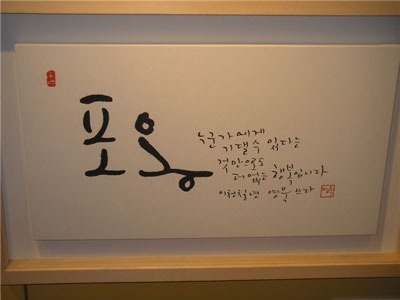 포옹
누군가에게
기댈수 있다는
것만으로도
더없는 행복입니다
이천칠년 영묵 쓰다